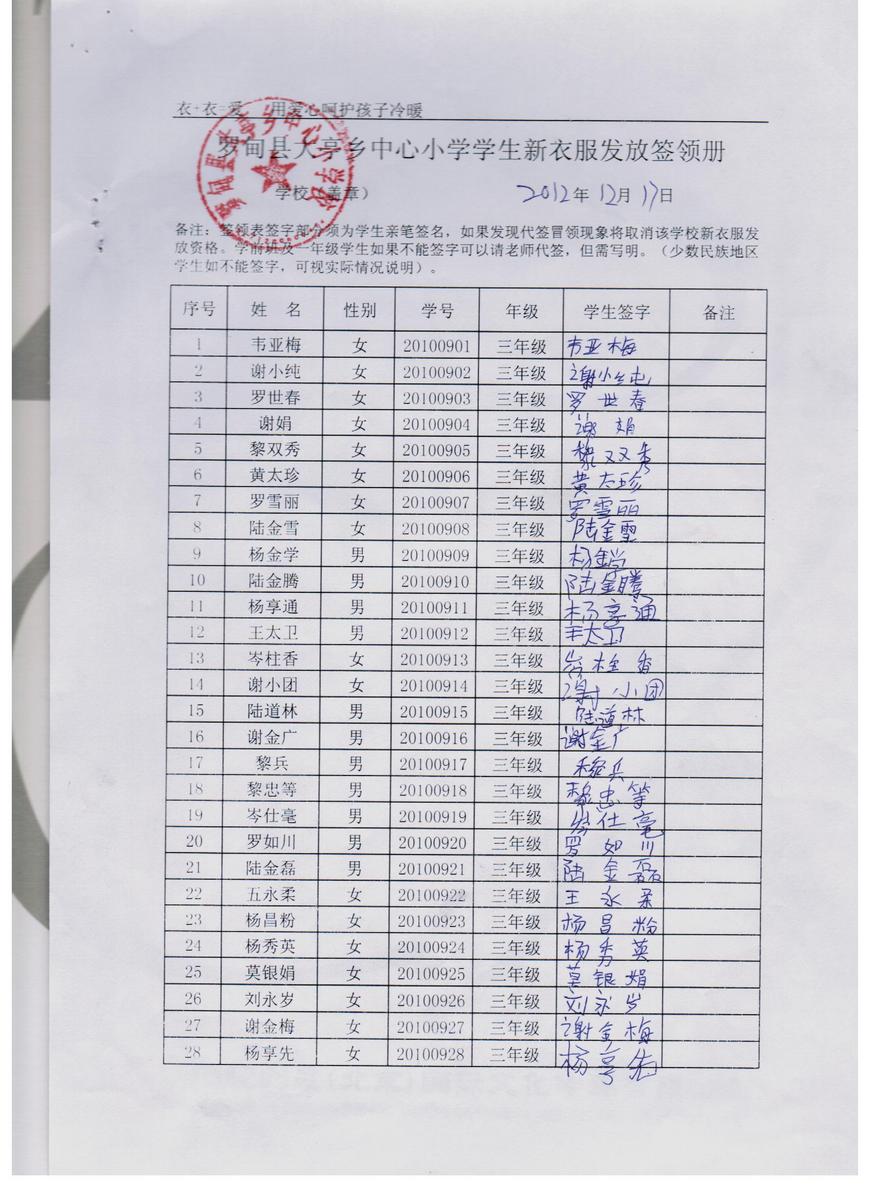 衣+衣=爱 用爱心呵护孩子冷暖
罗甸县大亭乡中心小学学生新衣服发放签领册
学校（盖章） 2012年12月17日
备注：签领表签字部分须为学生亲笔签名，如果发现代签冒领现象将取消该学校新衣服发
放资格。学前班及一年级学生如果不能签字可以请老师代签，但需写明。（少数民族地区
学生如不能签字，可视实际情况说明）。
序号 姓 名 性别 学号 年级 学生签字 备注
1 韦亚梅 女 20100901 三年级 韦亚梅
2 谢小纯 女 20100902 三年级 谢小纯
3 罗世春 女 20100903 三年级 罗世春
4 谢娟 女 20100904 三年级 谢娟
5 黎双秀 女 20100905 三年级 黎双秀
6 黄太珍 女 20100906 三年级 黄太珍
7 罗雪丽 女 20100907 三年级 罗雪丽
8 陆金雪 女 20100908 三年级 陆金雪
9 杨金学 男 20100909 三年级 杨金学
10 陆金腾 男 20100910 三年级 陆金腾
11 杨享通 男 20100911 三年级 杨享通
12 王太卫 男 20100912 三年级 王太卫
13 岑柱香 女 20100913 三年级 岑柱香
14 谢小团 女 20100914 三年级 谢小团
15 陆道林 男 20100915 三年级 陆道林
16 谢金广 男 20100916 三年级 谢金广
17 黎兵 男 20100917 三年级 黎兵
18 黎忠等 男 20100918 三年级 黎忠等
19 岑仕毫 男 20100919 三年级 岑仕毫
20 罗如川 男 20100920 三年级 罗如川
21 陆金磊 男 20100921 三年级 陆金磊
22 五永柔 女 20100922 三年级 王永柔
23 杨昌粉 女 20100923 三年级 杨昌粉
24 杨秀英 女 20100924 三年级 杨秀英
25 莫银娟 女 20100925 三年级 莫银娟
26 刘永岁 女 20100926 三年级 刘永岁
27 谢金梅 女 20100927 三年级 谢金梅
28 杨享先 女 20100928 三年级 杨享先